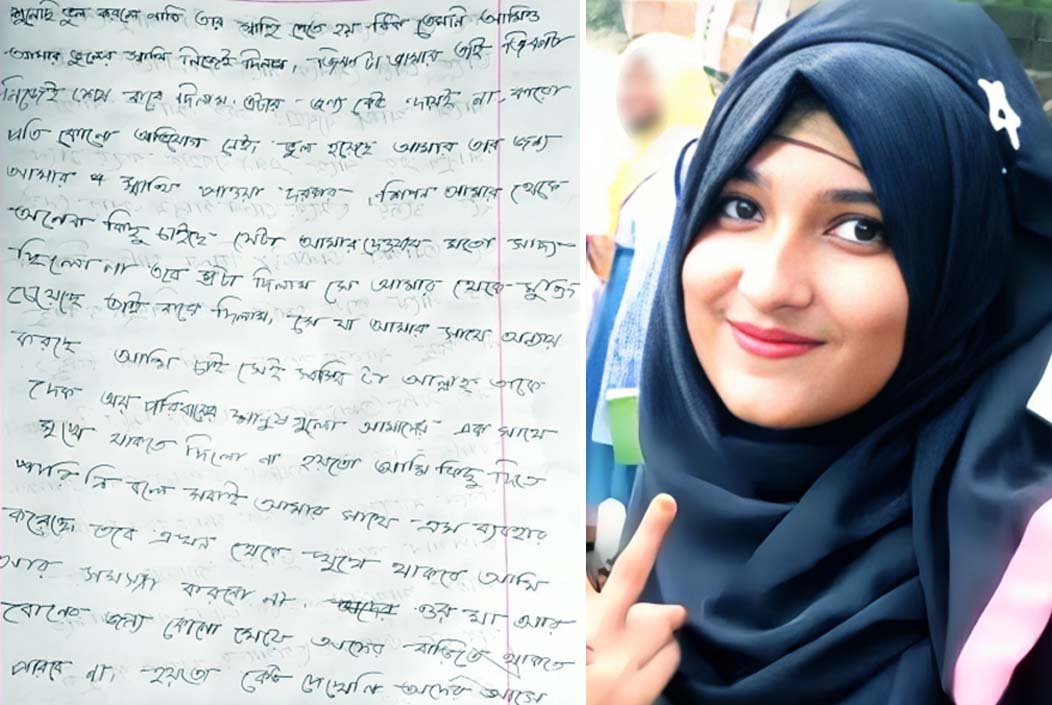 শুনেছি ভুল করলে নাকি তার শাস্তি পেতে হয় ঠিক তেমনি আমিও
আমার ভুলের শাস্তি নিজেই দিলাম। জিবনটা আমার তাই জিবনটা
নিজেই শেষ করে দিলাম। এটার জন্য কেউ দায়ই না, কারো
প্রতি কোনো অভিযোগ নেই, ভুল হয়েছে আমার তার জন্য
আমার এ শাস্তি পাওয়া দরকার, আমার থেকে
অনেক কিছু চাইছে সেটা আমার দেওয়ার মতো সাদ্য
ছিলো না তবে এটা দিলাম সে আমার থেকে মুক্তি
চেয়েছে তাই করে দিলাম, সে যা আমার সাথে অন্যায়
করছে আমি চাই সেই সবকিছু টা আল্লাহ তাকে
দেক অয় পরিবারের মানুষ গুলো আমাদের এক সাথে
সুখে থাকতে দিলো না হয়তো আমি কিছু দিতে
পারি নি বলে সবাই আমার সাথে এমন ব্যবহার
করেছে তবে এখন থেকে সুখে থাকবে আমি
আর সমস্যা করবো না। ওর মা আর
বোনের জন্য কোনো মেয়ে অদের বাড়িতে থাকতে
পারবে না, হয়তো কেউ দেখেনি অদের আসে